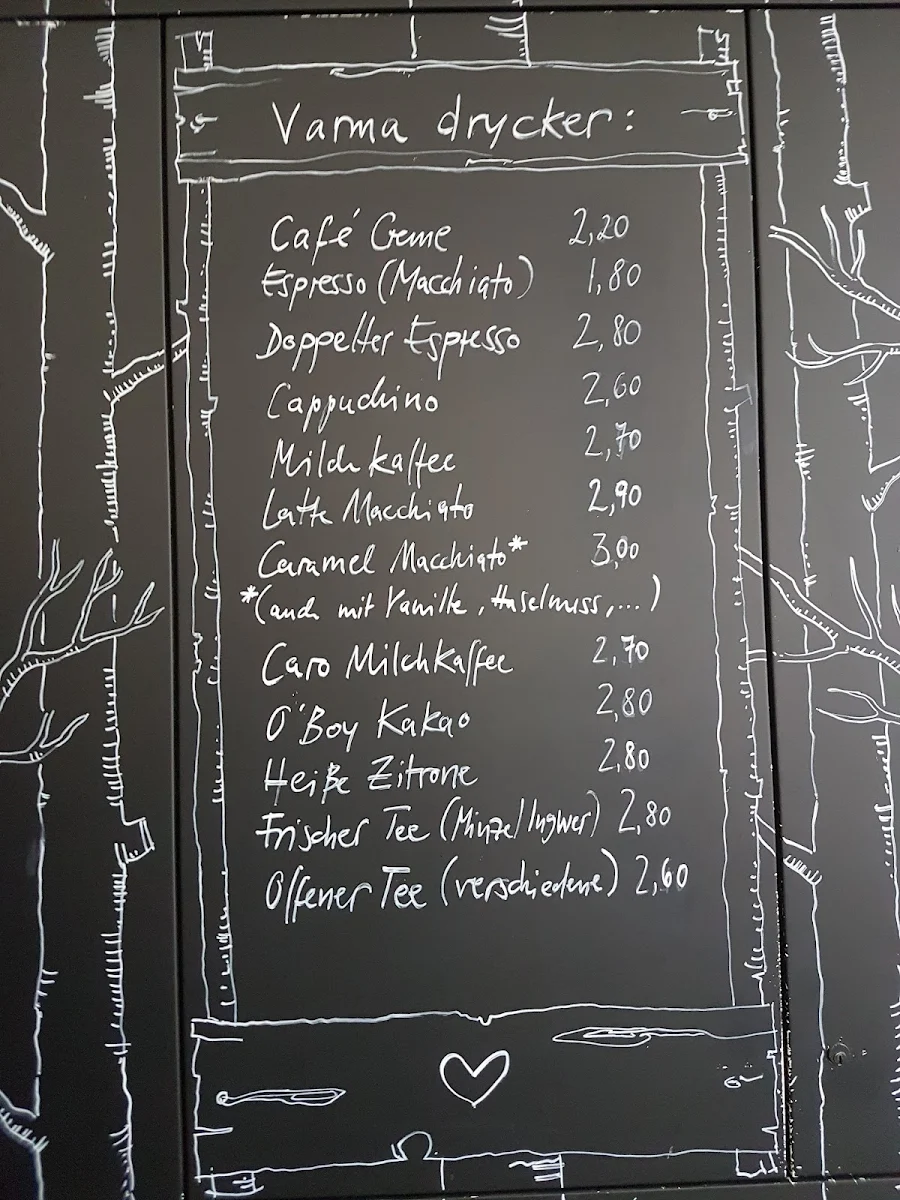 Varma drycker:
Café Creme 2,20
Espresso (Macchiato) 1,80
Doppelter Espresso 2,80
Cappuchino 2,60
Milchkaffee 2,70
Latte Macchiato 2,90
Caramel Macchiato* 3,00
*(auch mit Vanille, Haselnuss,...)
Caro Milchkaffee 2,70
O'Boy Kakao 2,80
Heiße Zitrone 2,80
Frischer Tee (Minze/Ingwer) 2,80
Offener Tee (verschiedene) 2,60